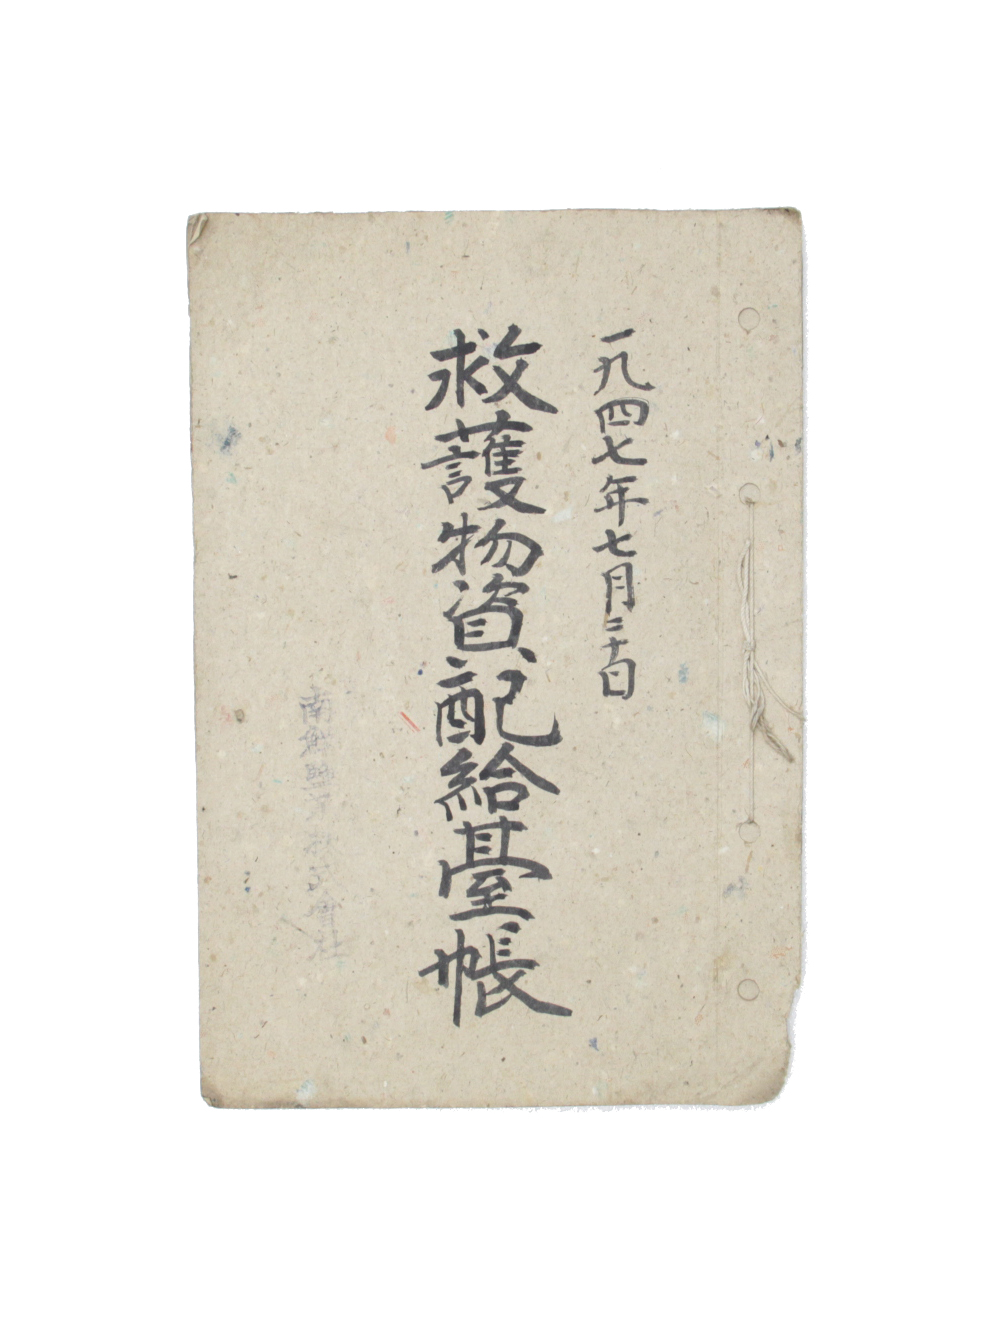 一九四七年七月二十日
救護物資配給臺帳
南鮮
會社